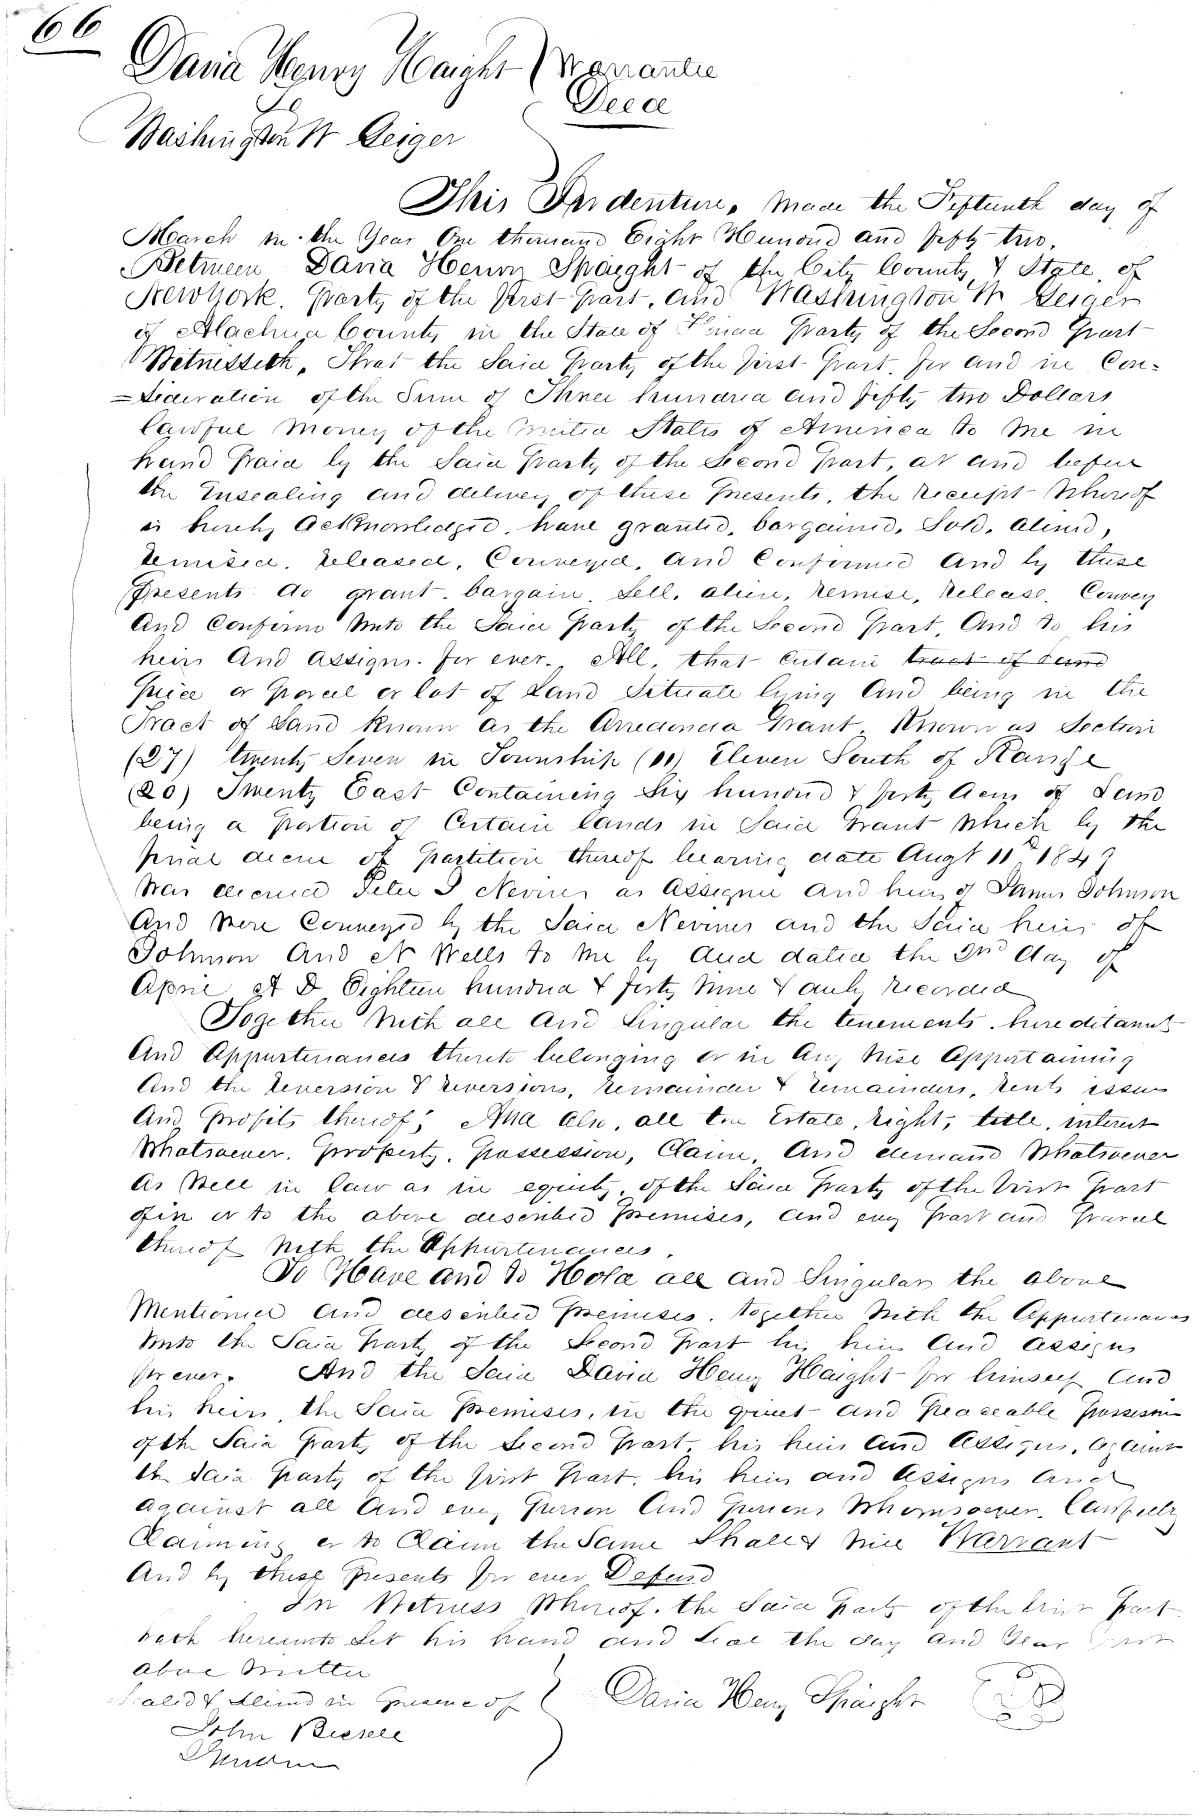 66
David Henry Haight Warrantee
To Deed
Washington W Geiger
This Indenture, Made the Fifteenth day of
March in the Year One thousand Eight Hundred and fifty two,
Between David Henry Spaight of the City County & State of
NewYork, party of the first part, and Washington W Geiger
of Alachua County in the State of party of the Second part
Witnesseth, That the Said party of the first part, for and in Con-
=sideration of the Sum of Three hundred and fifty two Dollars
lawful Money of the United States of America to Me in
hand paid by the Said party of the Second part, at and before
the Ensealing and delivery of these presents, the receipt whereof
is hereby acknowledged, have granted, bargained, Sold, aliend,
remised, released, Conveyed, and Confirmed and by these
presents do grant, bargain, Sell, alien, remise, release, Convey
and Confirm Unto the Said party of the Second part, and to his
heirs and assigns for ever, All, that certain tract of Land
piece or parcel or lot of Land Situate lying and being in the
Tract of Land Known as the Arredondo Grant, Known as Section
(27) twenty Seven in Township (11) Eleven South of Range
(20) Twenty East Containing Six hundred & forty Acres of Land
being a portion of Certain lands in Said Grant which by the
final decree of partition thereof bearing date Augt 11th 1849
was decreed Peter I Nevines as assignee and heirs of James Johnson
and were Conveyed by the Said Nevines and the Said heirs of
Johnson and N Wells to Me by deed dated the 2nd day of
April A D Eighteen hundred & forty nine & duly recorded
Together with all and Singular the tenements, hereditaments
and appurtenances thereto belonging or in any wise appertaining
and the reversion & reversions, remainder & remainders, rents issues
and profits thereof; And also, all the Estate, right, title, interest
Whatsoever, property, possession, Claim, and demand Whatsoever
as well in law as in equity, of the Said party of the first part
of in or to the above described premises, and every part and parcel
thereof with the appurtenances.
To Have and to Hold all and Singular the above
Mentioned and described premises, together with the appurtenances
unto the Said party of the Second part his heirs and assigns
for ever. And the Said David Henry Haight for himself and
his heirs, the Said premises, in the quiet and peaceable possession
of the Said party of the Second part, his heirs and assigns, against
the Said party of the first part, his heirs and assigns and
against all and every person and persons Whomsoever, lawfully
Claiming or to Claim the Same Shall & will Warrant
and by these presents for ever Defend
In Witness Whereof, the Said party of the first part
hath hereunto Set his hand and Seal the day and Year first
above written
Sealed & deliverd in presence of David Henry Spaight
John Bissell